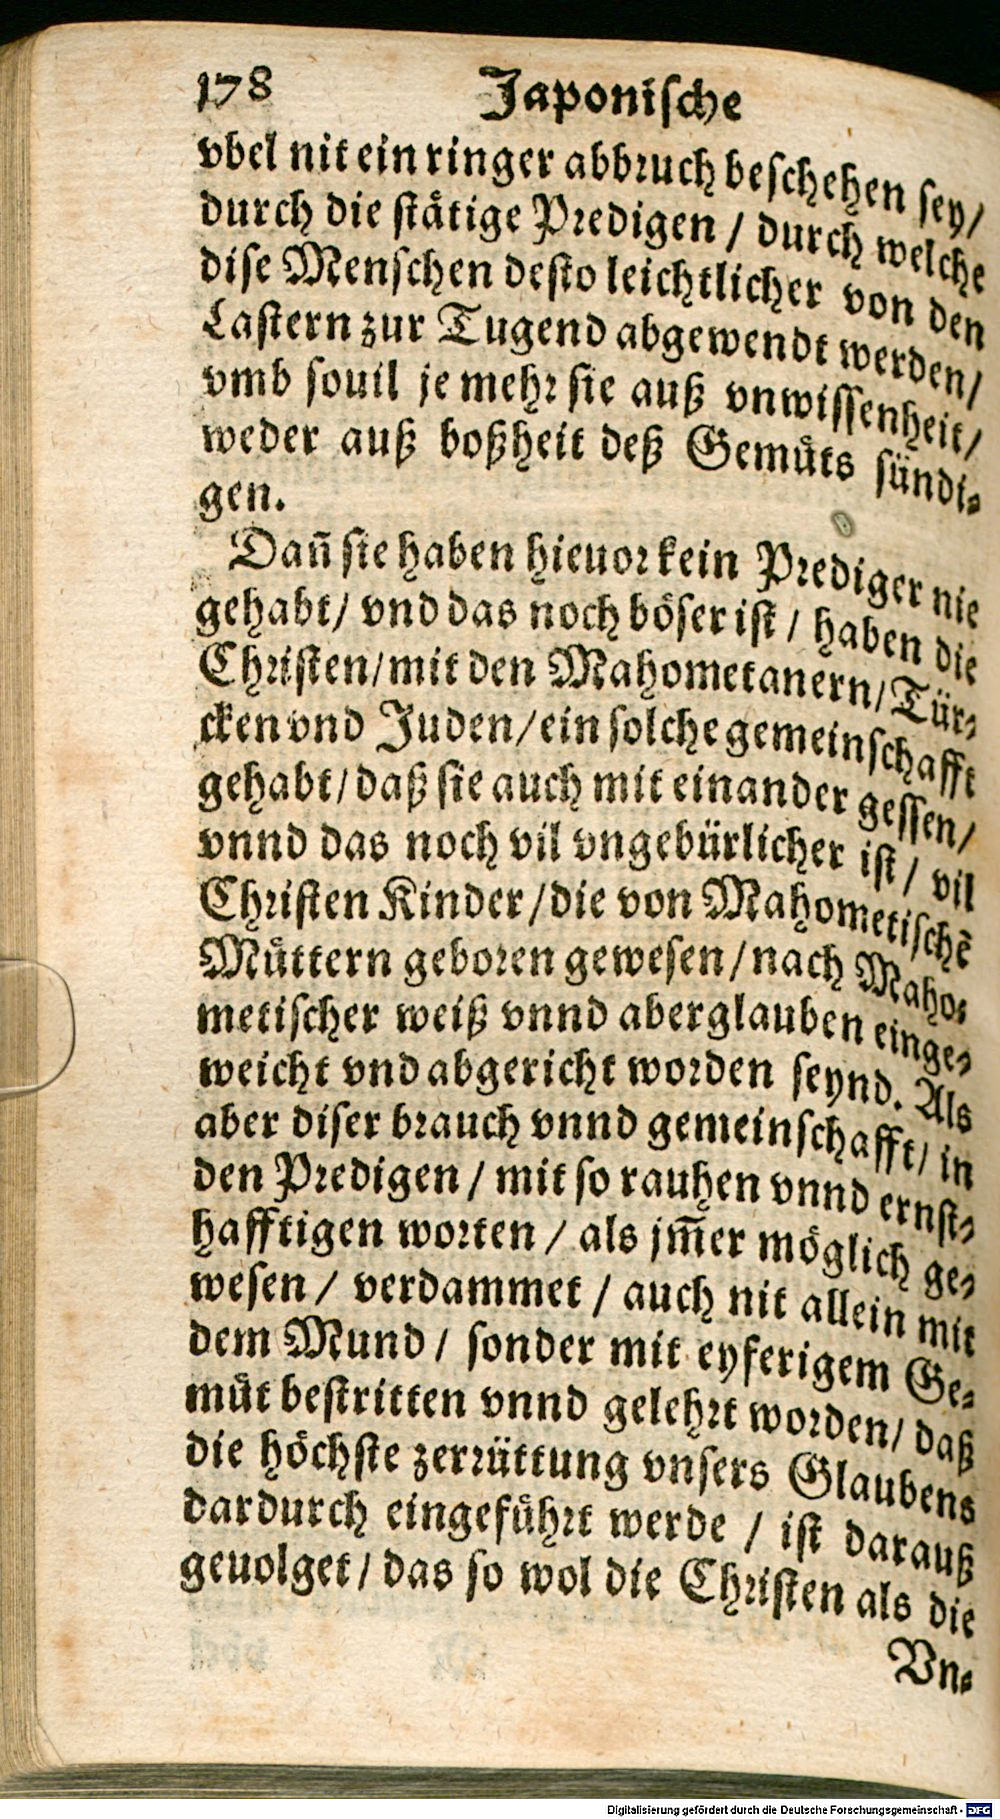 178 Japonische
vbel nit ein ringer abbruch beschehen sey/
durch die stätige Predigen / durch welche
dise Menschen desto leichtlicher von den
Lastern zur Tugend abgewendt werden/
vmb souil je mehr sie auß vnwissenheit/
weder auß boßheit deß Gemüts sündi-
gen.
Dañ sie haben hieuor kein Prediger nie
gehabt/ vnd das noch böser ist / haben die
Christen/mit den Mahometanern/Tür-
cken vnd Juden/ein solche gemeinschafft
gehabt/daß sie auch mit einander gessen/
vnnd das noch vil vngebürlicher ist / vil
Christen Kinder/die von Mahometischẽ
Müttern geboren gewesen/nach Maho-
metischer weiß vnnd aberglauben einge-
weicht vnd abgericht worden seynd. Als
aber diser brauch vnnd gemeinschafft/ in
den Predigen / mit so rauhen vnnd ernst-
hafftigen worten / als jm̃er möglich ge-
wesen / verdammet / auch nit allein mit
dem Mund / sonder mit eyferigem Ge-
müt bestritten vnnd gelehrt worden/ daß
die höchste zerrüttung vnsers Glaubens
dardurch eingeführt werde / ist darauß
geuolget / das so wol die Christen als die
Vn-
Digitalisierung gefördert durch die Deutsche Forschungsgemeinschaft - DFG